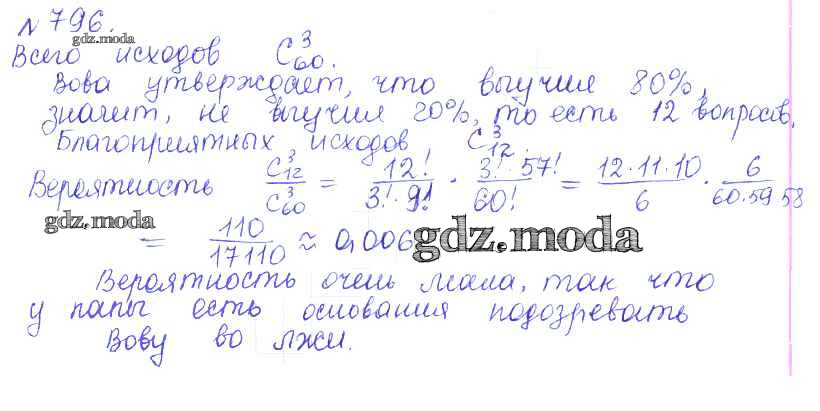 № 796.
gdz.moda
Всего исходов C³₆₀.
Вова утверждает, что выучил 80%,
значит, не выучил 20%, то есть 12 вопросов.
Благоприятных исходов C³₁₂.
Вероятность C³₁₂/C³₆₀ = 12!/(3!·9!) · (3!·57!)/60! = (12·11·10)/6 · 6/(60·59·58)
gdz.moda
= 110/17110 ≈ 0,006
gdz.moda
Вероятность очень мала, так что
у папы есть основания подозревать
Вову во лжи.